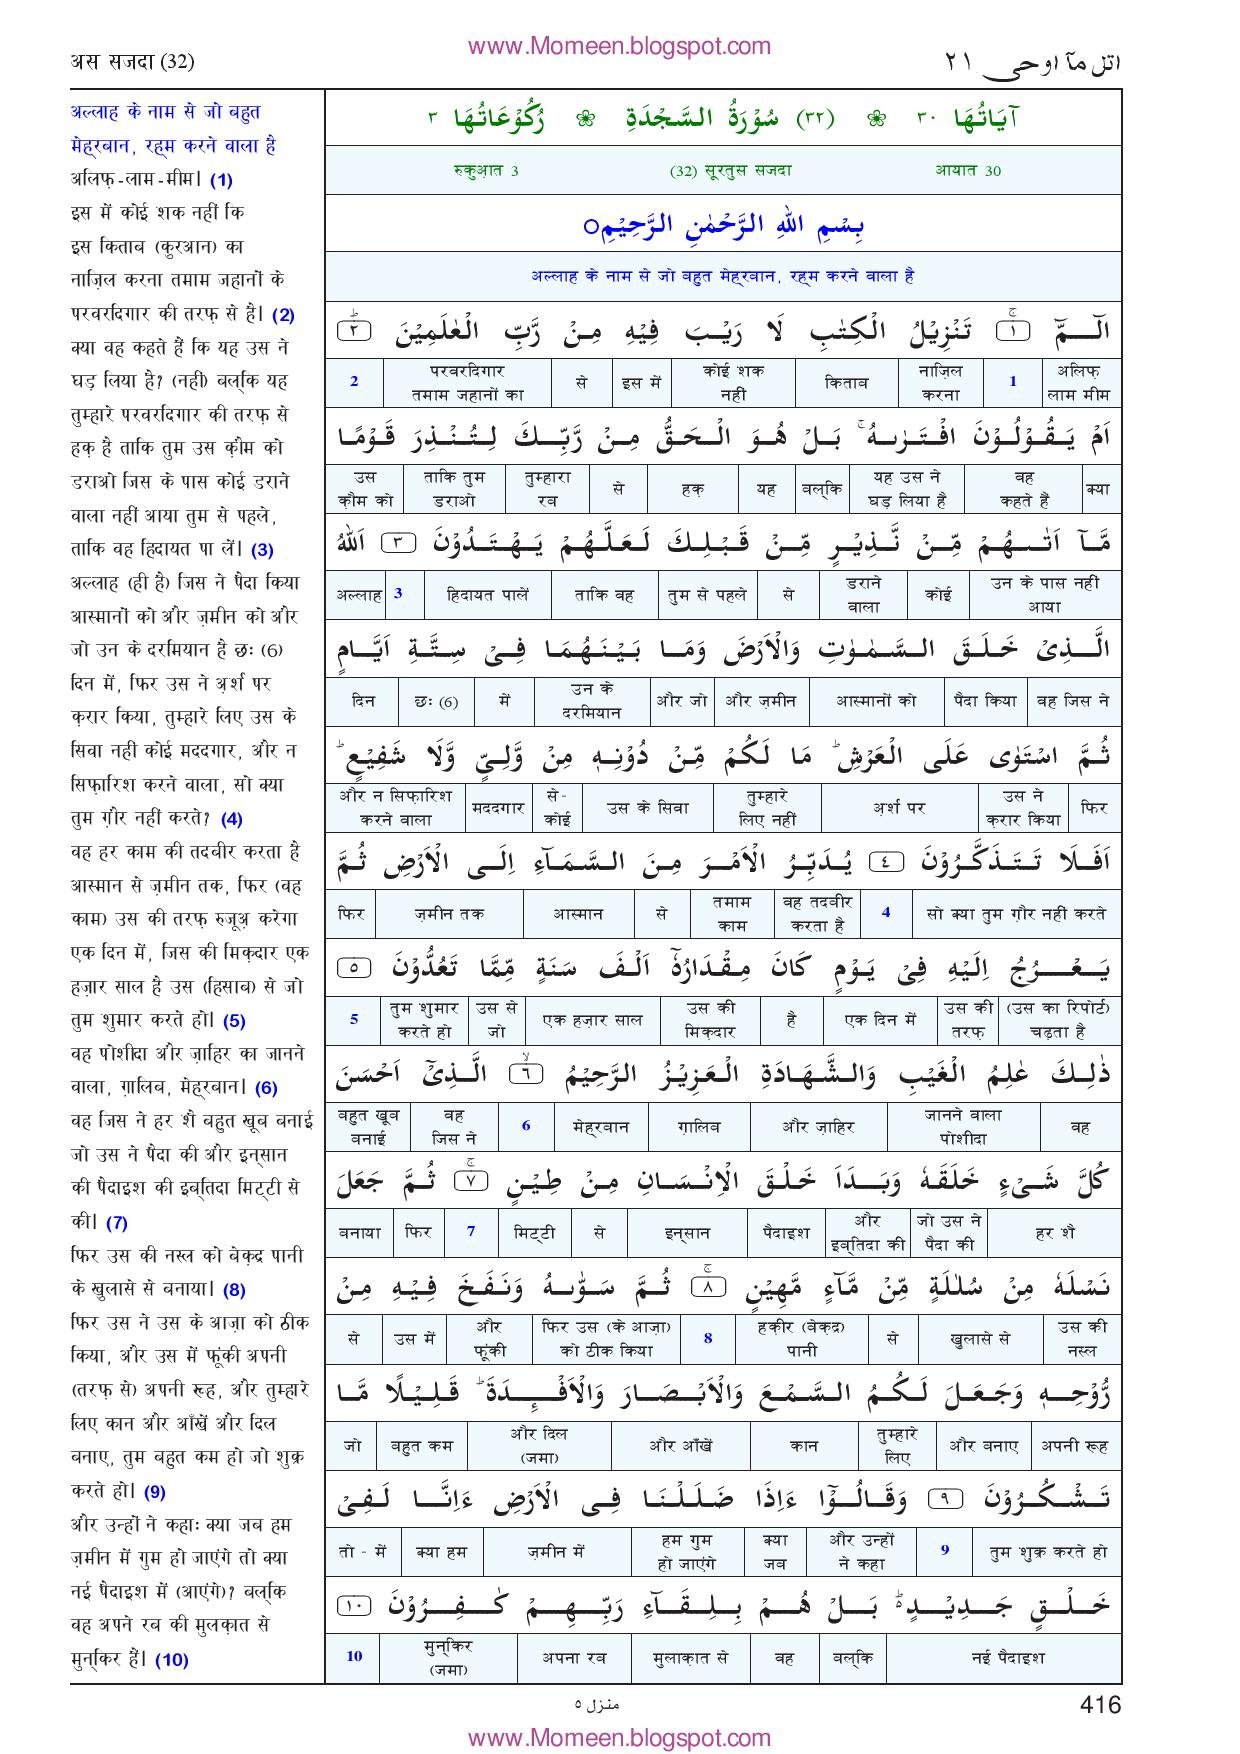 www.Momeen.blogspot.com
अस सजदा (32)
اتل مآ اوحی ۲۱
अल्लाह के नाम से जो बहुत
मेह्रबान, रह्म करने वाला है
अलिफ़-लाम-मीम। (1)
इस में कोई शक नहीं कि
इस किताब (कुरआन) का
नाज़िल करना तमाम जहानों के
परवरदिगार की तरफ़ से है। (2)
क्या वह कहते हैं कि यह उस ने
घड़ लिया है? (नहीं) बल्कि यह
तुम्हारे परवरदिगार की तरफ़ से
हक़ है ताकि तुम उस क़ौम को
डराओ जिस के पास कोई डराने
वाला नहीं आया तुम से पहले,
ताकि वह हिदायत पा लें। (3)
अल्लाह (ही है) जिस ने पैदा किया
आस्मानों को और ज़मीन को और
जो उन के दरमियान है छः (6)
दिन में, फिर उस ने अ़र्श पर
क़रार किया, तुम्हारे लिए उस के
सिवा नहीं कोई मददगार, और न
सिफ़ारिश करने वाला, सो क्या
तुम ग़ौर नहीं करते? (4)
वह हर काम की तदबीर करता है
आस्मान से ज़मीन तक, फिर (वह
काम) उस की तरफ़ रुजूअ़ करेगा
एक दिन में, जिस की मिक़दार एक
हज़ार साल है उस (हिसाब) से जो
तुम शुमार करते हो। (5)
वह पोशीदा और ज़ाहिर का जानने
वाला, ग़ालिब, मेह्रबान। (6)
वह जिस ने हर शै बहुत खूब बनाई
जो उस ने पैदा की और इन्सान
की पैदाइश की इब्तिदा मिट्टी से
की। (7)
फिर उस की नस्ल को बेक़द्र पानी
के खुलासे से बनाया। (8)
फिर उस ने उस के आज़ा को ठीक
किया, और उस में फूंकी अपनी
(तरफ़ से) अपनी रूह, और तुम्हारे
लिए कान और आँखें और दिल
बनाए, तुम बहुत कम हो जो शुक्र
करते हो। (9)
और उन्हों ने कहाः क्या जब हम
ज़मीन में गुम हो जाएंगे तो क्या
नई पैदाइश में (आएंगे)? बल्कि
वह अपने रब की मुलक़ात से
मुन्किर हैं। (10)
آيَاتُهَا ٣٠ ❀ (٣٢) سُوْرَةُ السَّجْدَةِ ❀ رُكُوْعَاتُهَا ٣
रुकुआ़त 3 (32) सूरतुस सजदा आयात 30
بِسْمِ اللهِ الرَّحْمٰنِ الرَّحِيْمِ○
अल्लाह के नाम से जो बहुत मेह्रबान, रह्म करने वाला है
الٓـمّٓ ۚ ١ تَنْزِيْلُ الْكِتٰبِ لَا رَيْبَ فِيْهِ مِنْ رَّبِّ الْعٰلَمِيْنَ ؕ ٢
2 परवरदिगार तमाम जहानों का से इस में कोई शक नहीं किताब नाज़िल करना 1 अलिफ़ लाम मीम
اَمْ يَقُوْلُوْنَ افْتَرٰىهُ ۚ بَلْ هُوَ الْحَقُّ مِنْ رَّبِّكَ لِتُنْذِرَ قَوْمًا
उस क़ौम को ताकि तुम डराओ तुम्हारा रब से हक़ यह बल्कि यह उस ने घड़ लिया है वह कहते है क्या
مَّآ اَتٰىهُمْ مِّنْ نَّذِيْرٍ مِّنْ قَبْلِكَ لَعَلَّهُمْ يَهْتَدُوْنَ ٣ اَللهُ
अल्लाह 3 हिदायत पालें ताकि वह तुम से पहले से डराने वाला कोई उन के पास नहीं आया
الَّذِىْ خَلَقَ السَّمٰوٰتِ وَالْاَرْضَ وَمَا بَيْنَهُمَا فِىْ سِتَّةِ اَيَّامٍ
दिन छः (6) में उन के दरमियान और जो और ज़मीन आस्मानों को पैदा किया वह जिस ने
ثُمَّ اسْتَوٰى عَلَى الْعَرْشِ ؕ مَا لَكُمْ مِّنْ دُوْنِهٖ مِنْ وَّلِىٍّ وَّلَا شَفِيْعٍ ؕ
और न सिफ़ारिश करने वाला मददगार से- कोई उस के सिवा तुम्हारे लिए नहीं अ़र्श पर उस ने क़रार किया फिर
اَفَلَا تَتَذَكَّرُوْنَ ٤ يُدَبِّرُ الْاَمْرَ مِنَ السَّمَآءِ اِلَى الْاَرْضِ ثُمَّ
फिर ज़मीन तक आस्मान से तमाम काम वह तदबीर करता है 4 सो क्या तुम ग़ौर नहीं करते
يَعْرُجُ اِلَيْهِ فِىْ يَوْمٍ كَانَ مِقْدَارُهٗٓ اَلْفَ سَنَةٍ مِّمَّا تَعُدُّوْنَ ٥
5 तुम शुमार करते हो उस से जो एक हज़ार साल उस की मिक़दार है एक दिन में उस की तरफ़ (उस का रिपोर्ट) चढ़ता है
ذٰلِكَ عٰلِمُ الْغَيْبِ وَالشَّهَادَةِ الْعَزِيْزُ الرَّحِيْمُ ۙ ٦ الَّذِىْٓ اَحْسَنَ
बहुत खूब बनाई वह जिस ने 6 मेह्रबान ग़ालिब और ज़ाहिर जानने वाला पोशीदा वह
كُلَّ شَىْءٍ خَلَقَهٗ وَبَدَاَ خَلْقَ الْاِنْسَانِ مِنْ طِيْنٍ ۚ ٧ ثُمَّ جَعَلَ
बनाया फिर 7 मिट्टी से इन्सान पैदाइश और इब्तिदा की जो उस ने पैदा की हर शै
نَسْلَهٗ مِنْ سُلٰلَةٍ مِّنْ مَّآءٍ مَّهِيْنٍ ۚ ٨ ثُمَّ سَوّٰىهُ وَنَفَخَ فِيْهِ مِنْ
से उस में और फूंकी फिर उस (के आज़ा) को ठीक किया 8 हक़ीर (बेक़द्र) पानी से खुलासे से उस की नस्ल
رُّوْحِهٖ وَجَعَلَ لَكُمُ السَّمْعَ وَالْاَبْصَارَ وَالْاَفْـِٕدَةَ ؕ قَلِيْلًا مَّا
जो बहुत कम और दिल (जमा) और आँखें कान तुम्हारे लिए और बनाए अपनी रूह
تَشْكُرُوْنَ ٩ وَقَالُوْٓا ءَاِذَا ضَلَلْنَا فِى الْاَرْضِ ءَاِنَّا لَفِىْ
तो - में क्या हम ज़मीन में हम गुम हो जाएंगे क्या जब और उन्हों ने कहा 9 तुम शुक्र करते हो
خَلْقٍ جَدِيْدٍ ؕ بَلْ هُمْ بِلِقَآءِ رَبِّهِمْ كٰفِرُوْنَ ١٠
10 मुन्किर (जमा) अपना रब मुलाक़ात से वह बल्कि नई पैदाइश
منزل ٥
416
www.Momeen.blogspot.com